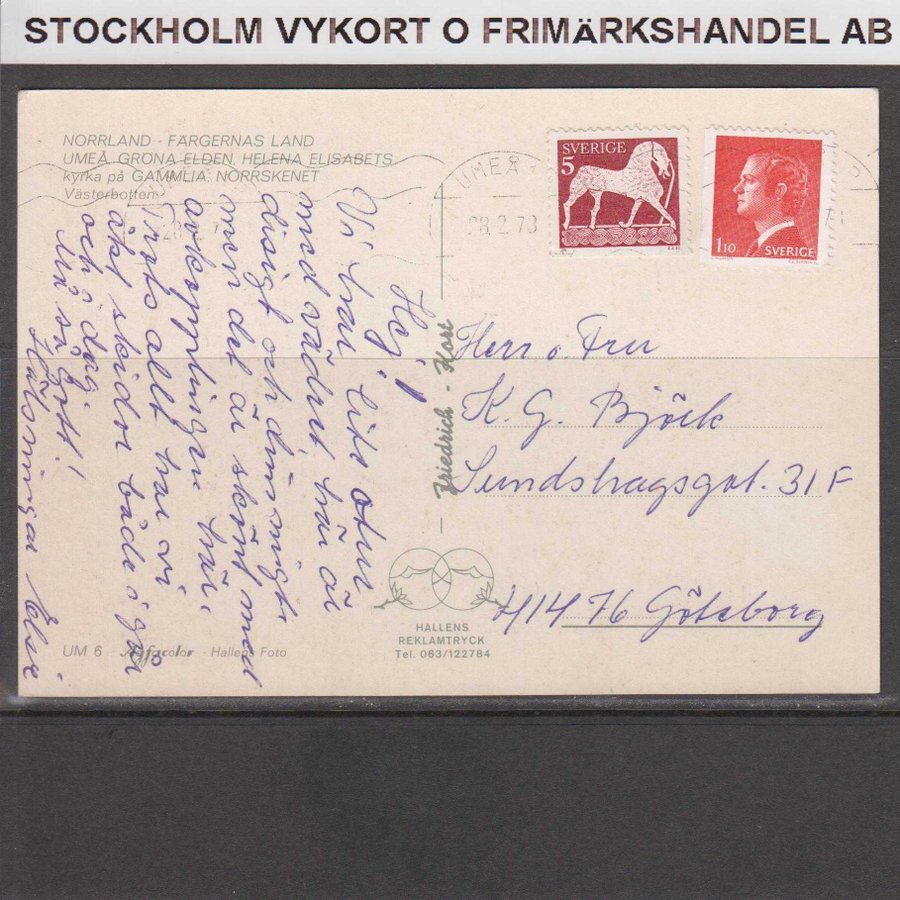 STOCKHOLM VYKORT O FRIMÄRKSHANDEL AB
NORRLAND - FÄRGERNAS LAND
UMEÅ. GRÖNA ELDEN. HELENA ELISABETS
kyrka på GAMMLIA. NORRSKENET
Västerbotten
UMEÅ
28.2.78
SVERIGE
5
1.10
SVERIGE
Hej!
Vi har litet otur
med vädret här är
disigt och dimmigt
men det är skönt med
avkopplingen här.
Trots allt har vi
åkt skidor både igår
och i dag
Un så gott!
Hälsningar Elsie
Friedrich - Kort
Herr o. Fru
K. G. Björk
Sundshagsgat. 31 F
414 76 Göteborg
HALLENS
REKLAMTRYCK
Tel. 063/122784
UM 6 Agfacolor - Hallens Foto